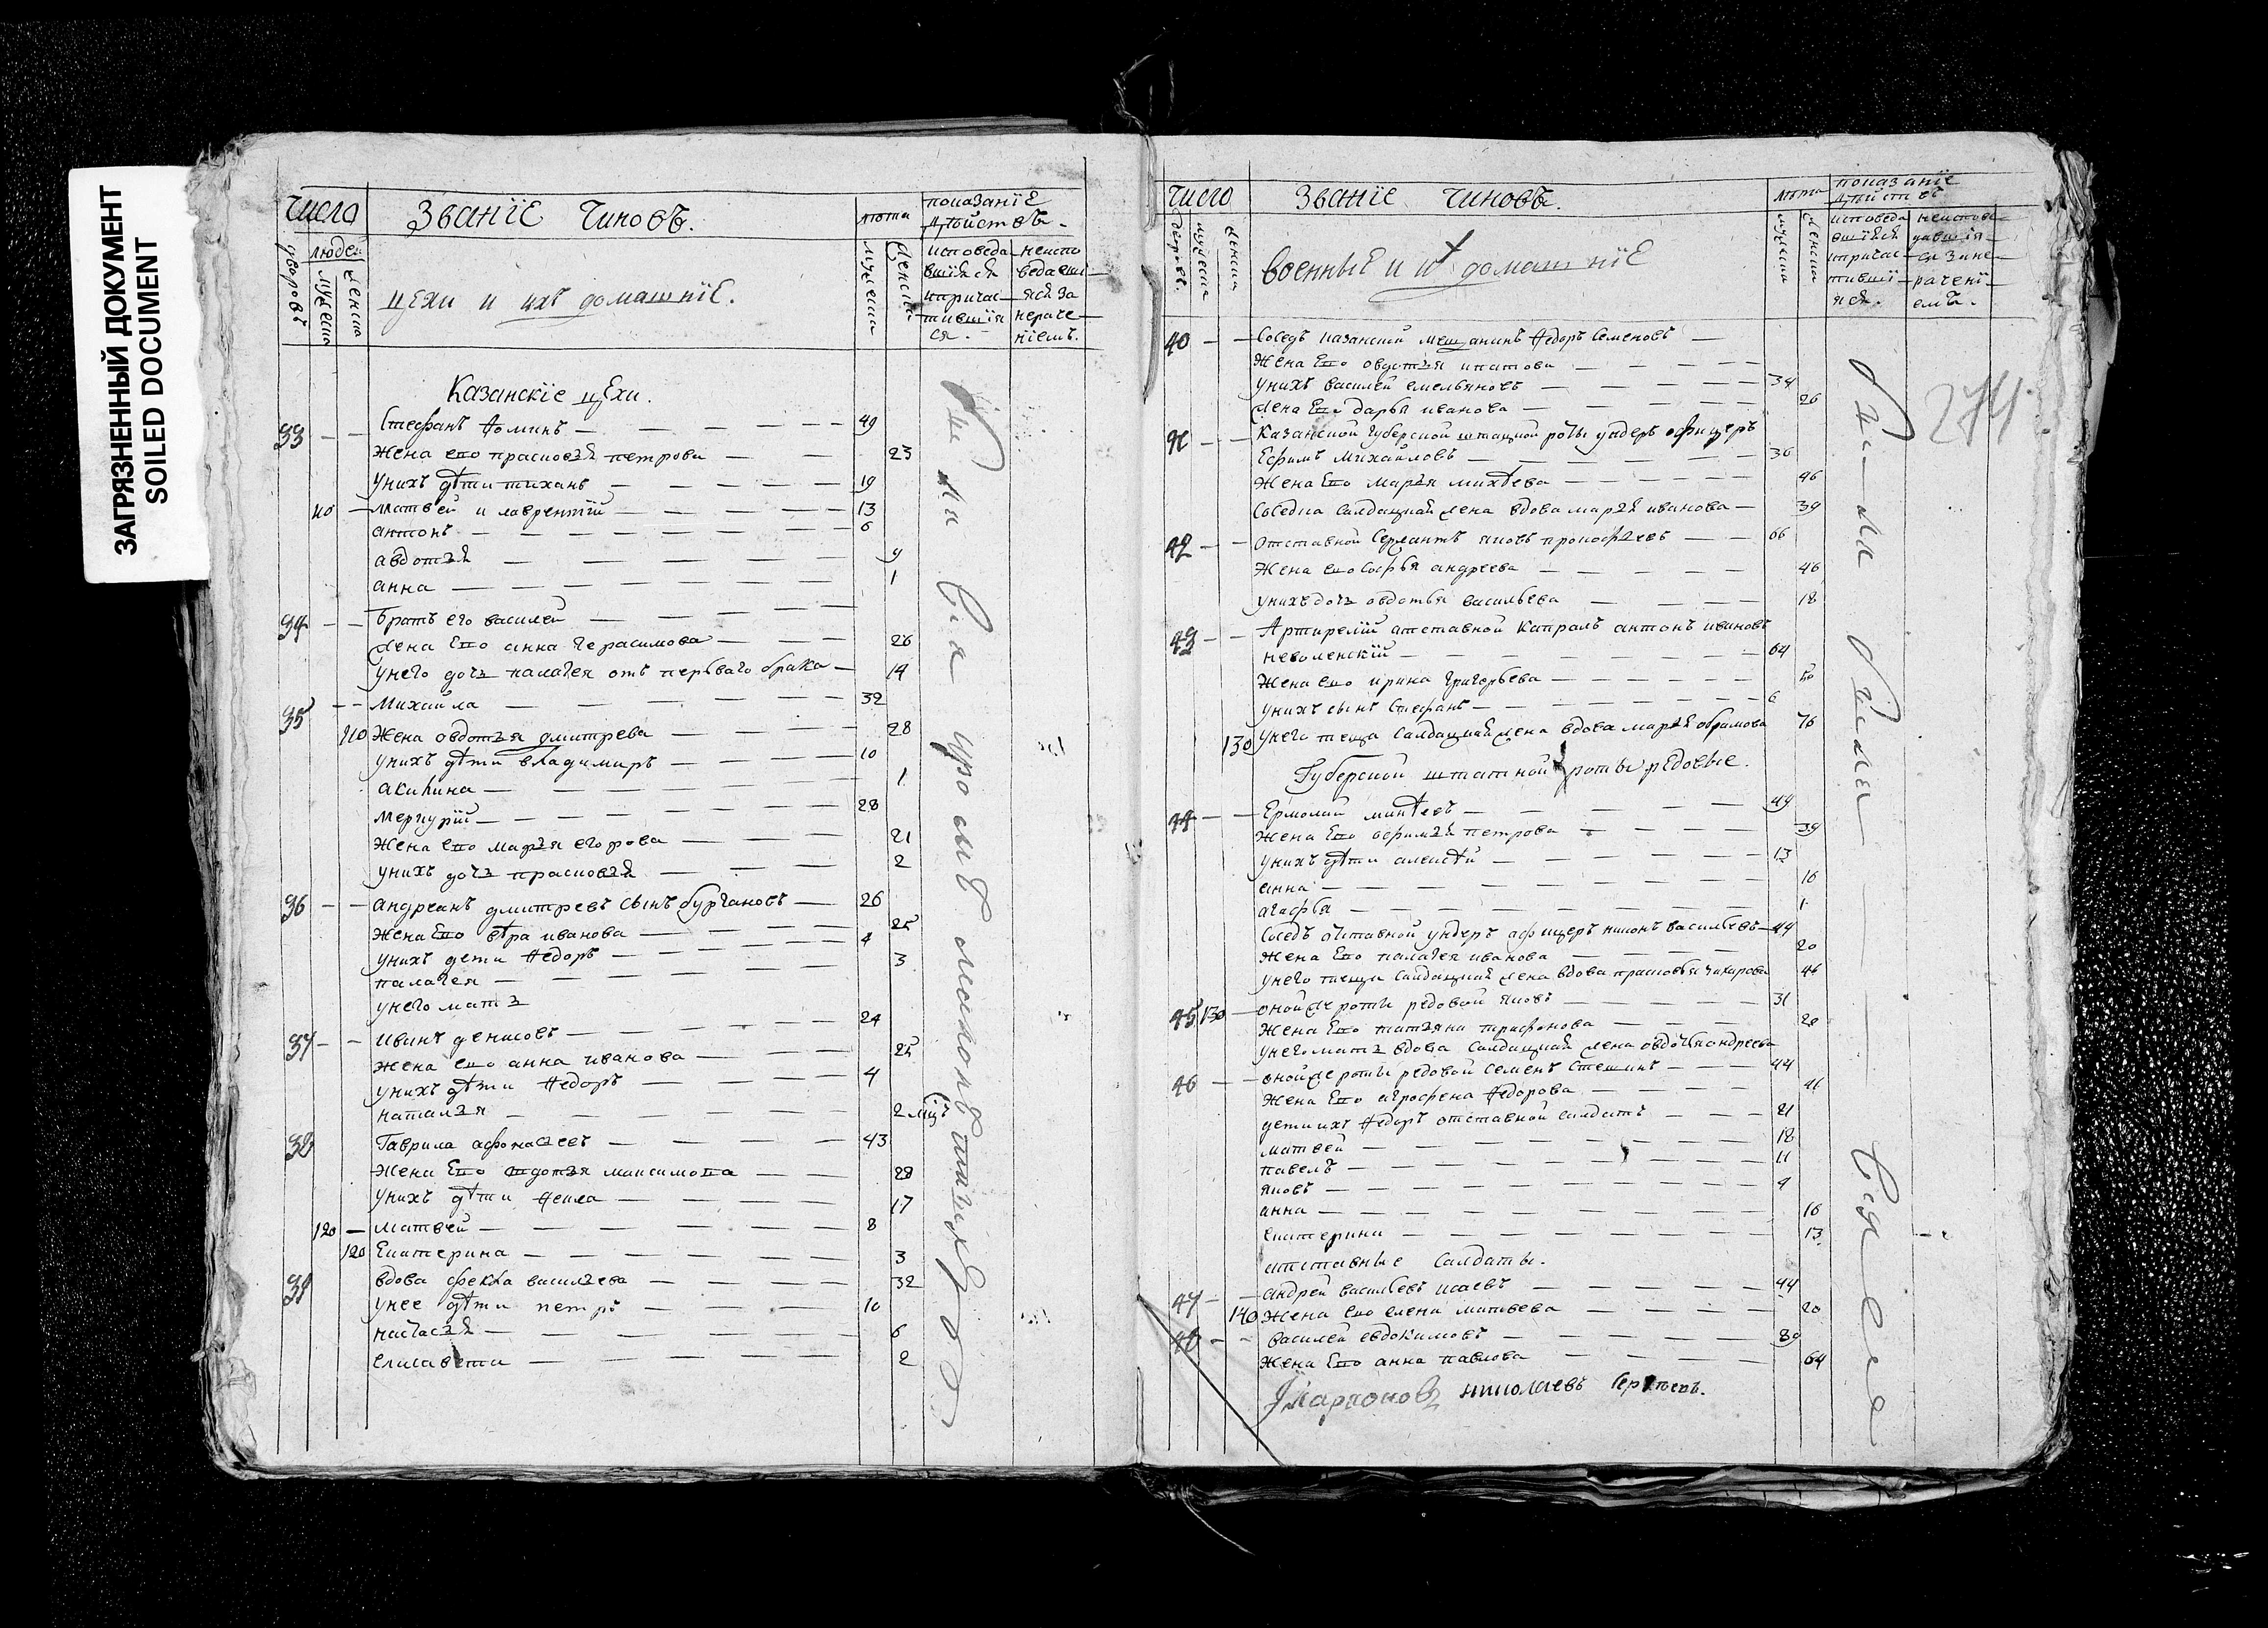 ЗАГРЯЗНЕННЫЙ ДОКУМЕНТ
SOILED DOCUMENT
Число Званїе Чиновъ. лѣта показанїе дѣйствъ.
дворовъ людей мужеска женска
мужеска женска
исповедавшїися и причастившїяся.
неисповедавшїяся за нераченїемъ.
цехи и ихъ домашнїе.
Казанскїе цехи.
33 Стефанъ Ѳоминъ 49
жена ево прасковья петрова 23
у нихъ дѣти тиханъ 19
матвей и лаврентїй 13
антонъ 6
авдотья 9
анна 1
34 братъ его василей
жена ево анна герасимова 26
у него дочь палагея отъ перваго брака 14
35 Михаила 32
110 жена овдотья дмитрева 28
у нихъ дѣти владимиръ 10
акилина 1
меркурїй 28
жена ево марья егорова 21
у нихъ дочь прасковья 2
36 андреанъ дмитревъ сынъ бургановъ 26
жена ево вѣра иванова 25
у нихъ дети Ѳедоръ 4
палагея 3
у него мать
37 иванъ денисовъ 24
жена ево анна иванова 25
у нихъ дѣти Ѳедоръ 4
наталья 2
38 Гаврила афонасьевъ 43
жена ево овдотья максимова 28
у нихъ дѣти Ѳекла 17
120 матвей 8
120 Екатерина 3
39 вдова фекла васильева 32
у нее дѣти петръ 10
настасья 6
елисавета 2
были вси кроме малолѣтнихъ
Число Званїе Чиновъ. лѣта показанїе дѣйствъ
дворовъ мужеска женска
мужеска женска
исповедавшїися и причастившїяся.
неисповедавшїяся за нераченїемъ.
военные и ихъ домашнїе
274
40 Соседъ казанской мещанинъ Ѳедоръ Семеновъ
жена ево овдотья ипатова
у нихъ василей емельяновъ 34
жена ево дарья иванова 26
41 Казанской губерской штатной роты ундеръ офицеръ
Ефимъ Михайловъ 36
жена ево марья михѣева 46
соседка салдацкая жена вдова марья иванова 39
42 отставной сержантъ яковъ прокофьевъ 66
жена ево софья андреева 46
у нихъ дочь овдотья васильева 18
43 Артирелїи атставной капралъ антонъ ивановъ
неволенскїй 64
жена ево ирина григорьева
у нихъ сынъ Стефанъ 6
130 у него теща салдацкая жена вдова марья обрамова 76
Губерской штатной роты редовые.
44 Ермолай минѣевъ 49
жена ево ефимья петрова 39
у нихъ дѣти алексѣй 13
анна 16
агафья 1
Соседъ отставной ундеръ афицеръ никонъ васильевъ 44
жена ево палагея иванова 20
у него теща салдацкая жена вдова прасковья захарова 46
45 130 оной же роты редовой яковъ 31
жена ево татьяна трифонова 20
у него мать вдова салдацкая жена овдотья андреева
46 оной же роты редовой семенъ стешинъ 44
жена ево агрофена Ѳедорова 41
дети ихъ Ѳедоръ отставной салдатъ 21
матвей 18
павелъ 11
яковъ 9
анна 16
екатерина 13
атставные салдаты.
47 андрей васильевъ исаевъ 44
140 жена ево елена матвева 20
48 василей евдокимовъ 89
жена ево анна павлова 64
были были вси
николаевъ